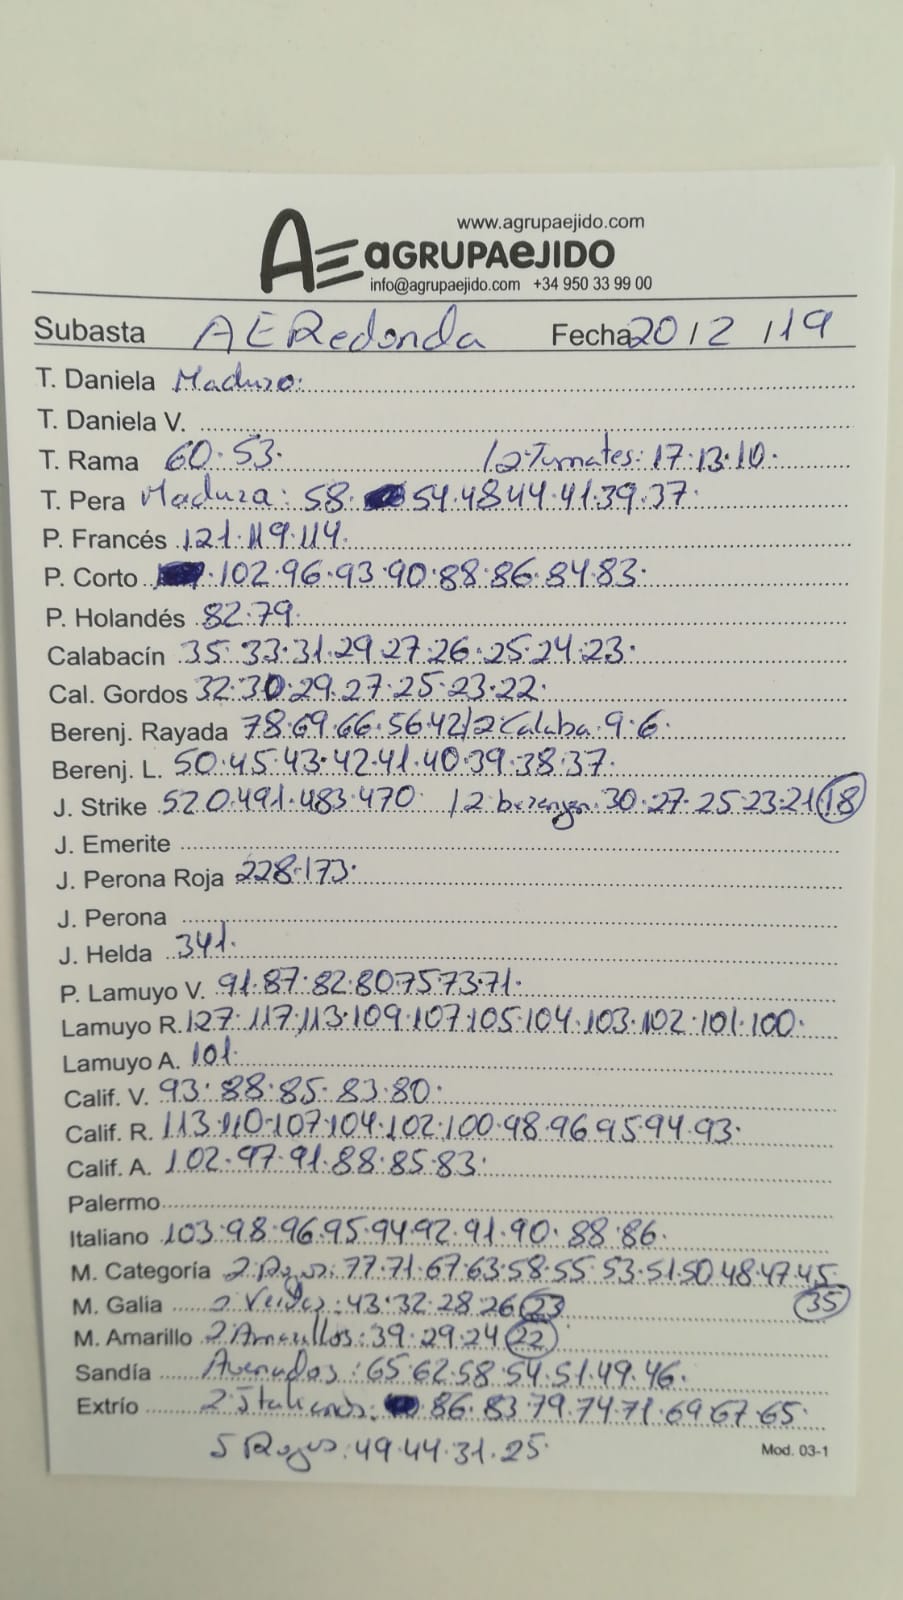 www.agrupaejido.com
AE AGRUPAEJIDO
info@agrupaejido.com +34 950 33 99 00
Subasta AE Redonda Fecha 20/2/19
T. Daniela Maduro:
T. Daniela V.
T. Rama 60.53. /2 Tumates: 17.13.10.
T. Pera Maduza: 58. 54.48.44.41.39.37.
P. Francés 121.119.114.
P. Corto .102.96.93.90.88.86.84.83.
P. Holandés 82.79.
Calabacín 35.33.31.29.27.26.25.24.23.
Cal. Gordos 32.30.29.27.25.23.22.
Berenj. Rayada 78.69.66.56.42/2 Calaba.9.6.
Berenj. L. 50.45.43.42.41.40.39.38.37.
J. Strike 520.491.483.470 /2 berengen.30.27.25.23.21 18
J. Emerite
J. Perona Roja 228.173.
J. Perona
J. Helda 341.
P. Lamuyo V. 91.87.82.80.75.73.71.
Lamuyo R. 127.117.113.109.107.105.104.103.102.101.100.
Lamuyo A. 101.
Calif. V. 93.88.85.83.80.
Calif. R. 113.110.107.104.102.100.98.96.95.94.93.
Calif. A. 102.97.91.88.85.83.
Palermo
Italiano 103.98.96.95.94.92.91.90.88.86.
M. Categoría 2 Rojos: 77.71.67.63.58.55.53.51.50.48.47.45
M. Galia 2 Verdes: 43.32.28.26 23 35
M. Amarillo 2 Amarillos: 39.29.24 22
Sandía Averiados: 65.62.58.54.51.49.46.
Extrío 2 Italianos: 86.83.79.74.71.69.67.65.
5 Rojos: 49.44.31.25.
Mod. 03-1